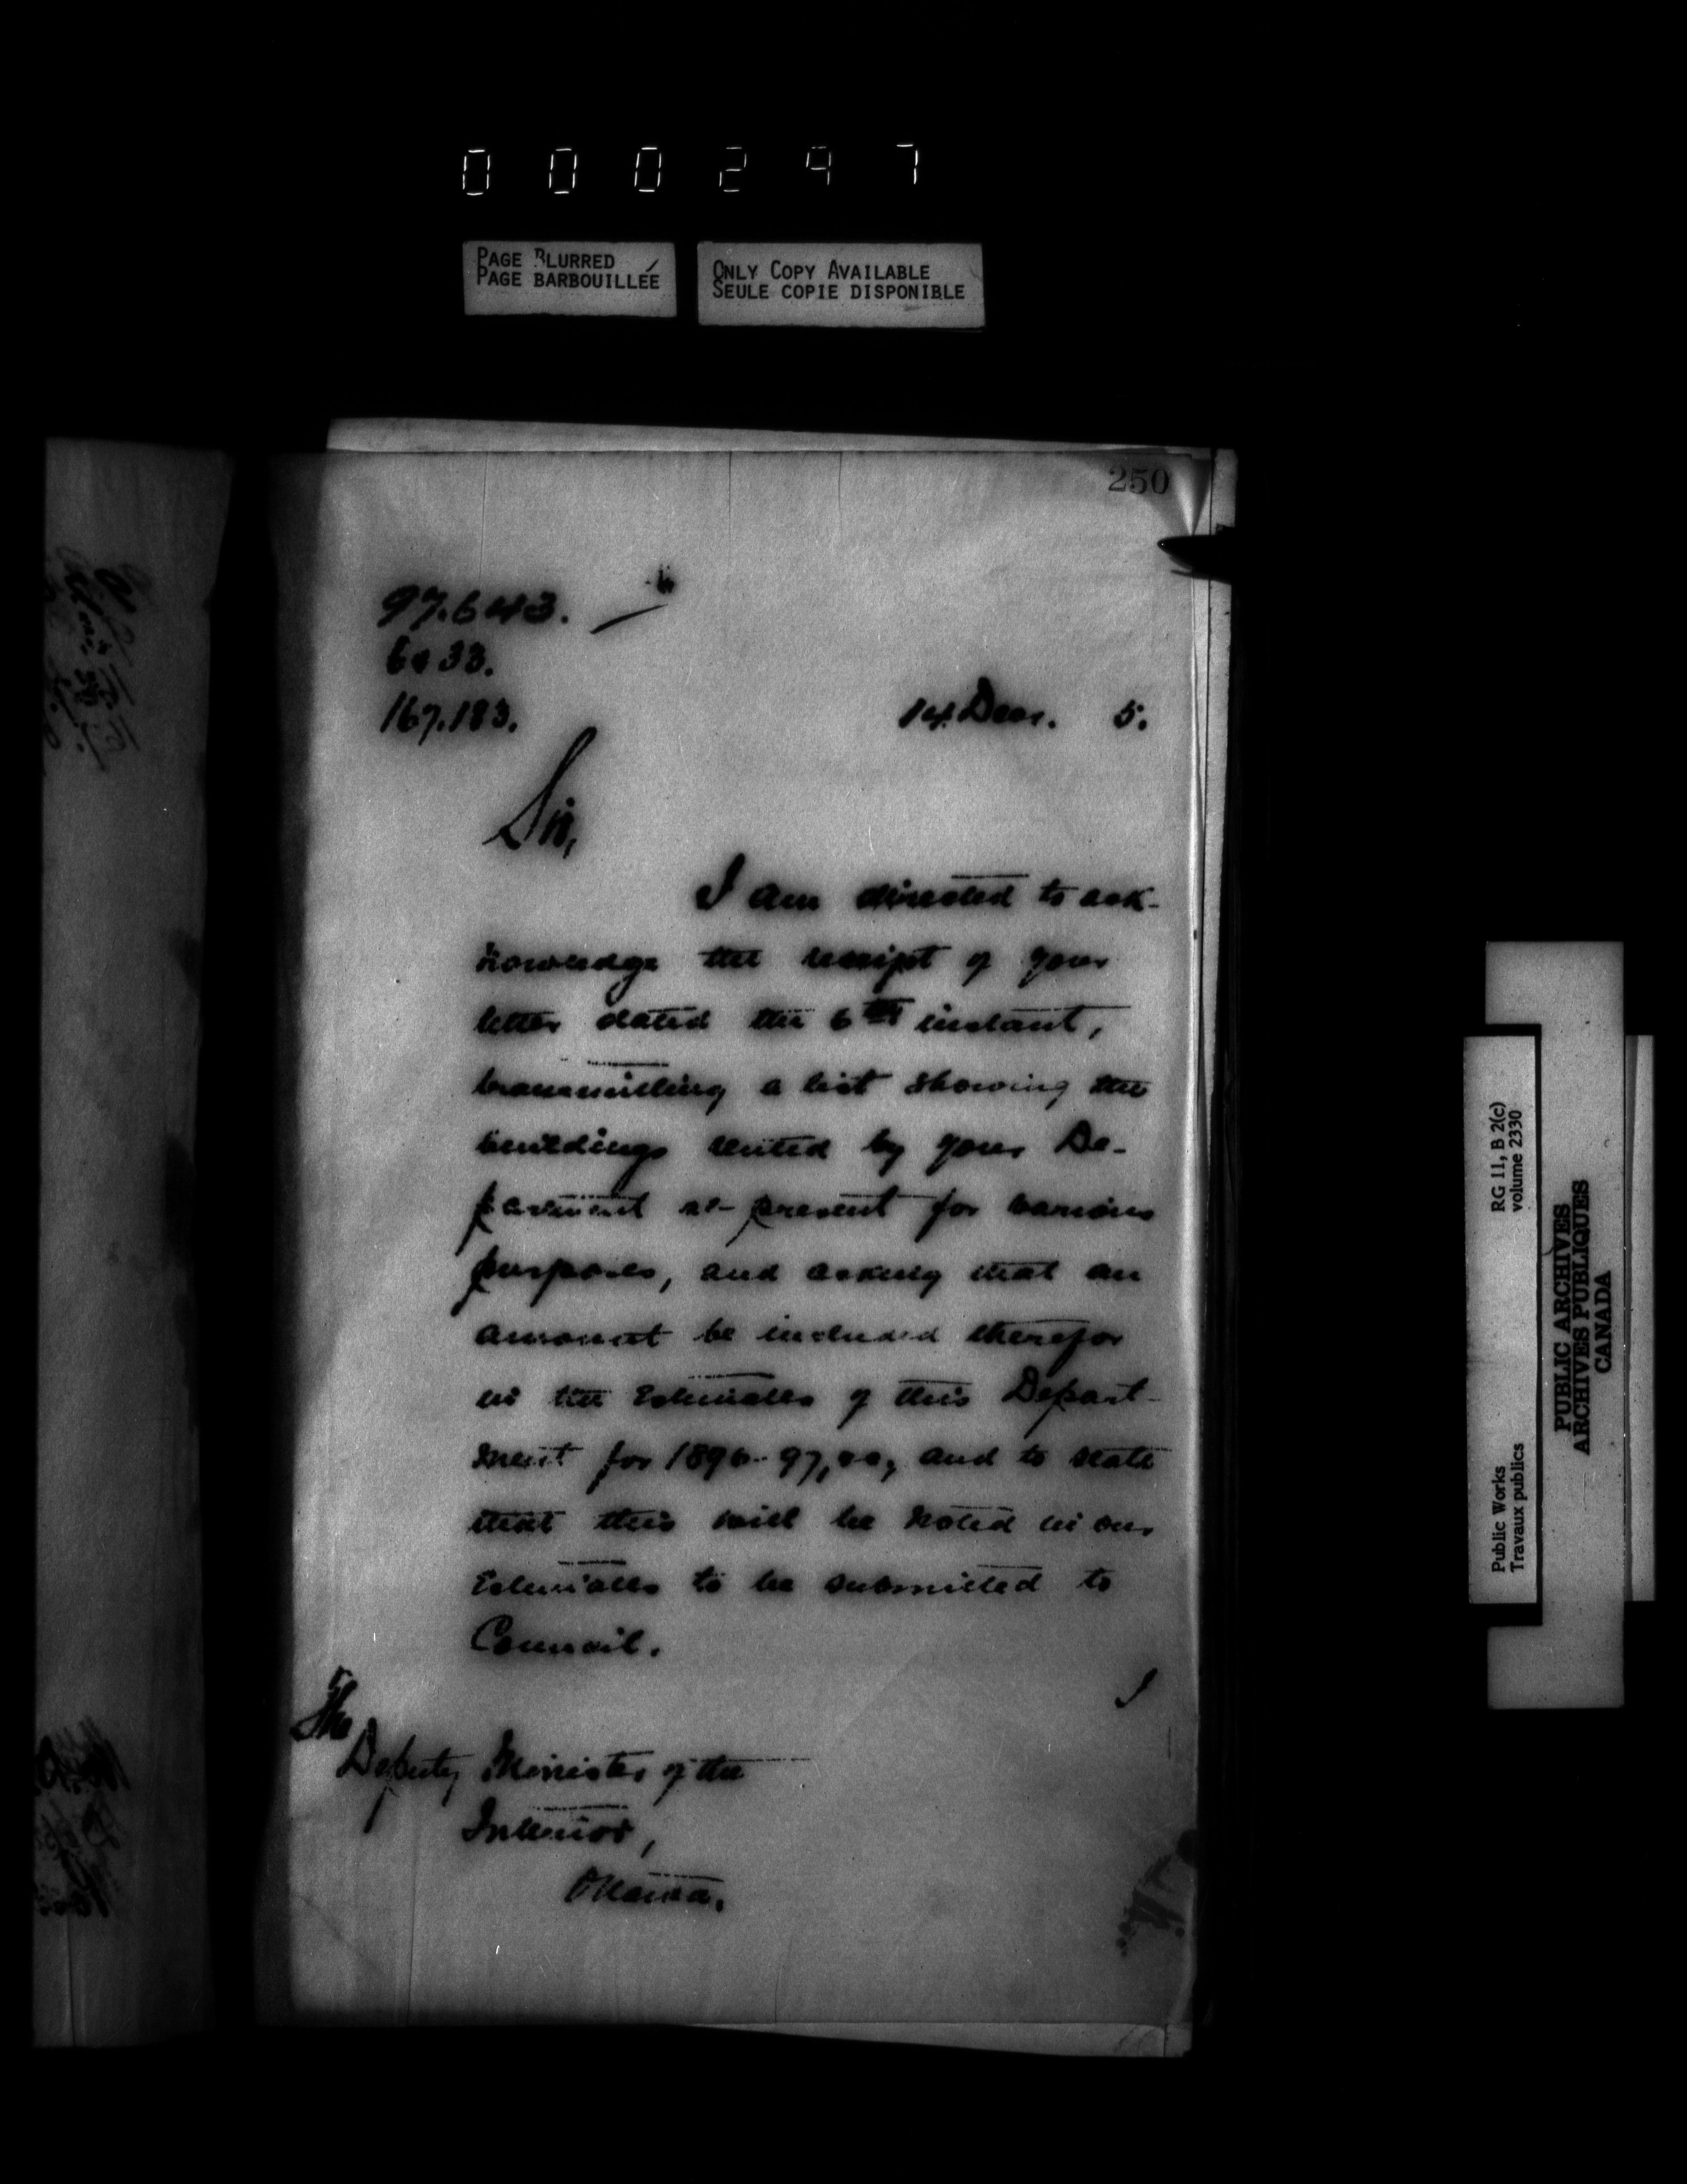 000297
PAGE BLURRED
PAGE BARBOUILLÉE
ONLY COPY AVAILABLE
SEULE COPIE DISPONIBLE
250
97.643.
6033.
167.183.
14 Decr. 5.
Sir,
I am directed to ack-
nowledge the receipt of your
letter dated the 6th instant,
transmitting a list showing the
buildings rented by your De-
partment at present for various
purposes, and asking that an
amount be included therefor
in the Estimates of this Depart-
ment for 1896-97, and to state
that this will be noted in our
Estimates to be submitted to
Council.
I
The
Deputy Minister of the
Interior,
Ottawa.
Public Works
Travaux publics
RG 11, B 2(c)
volume 2330
PUBLIC ARCHIVES
ARCHIVES PUBLIQUES
CANADA